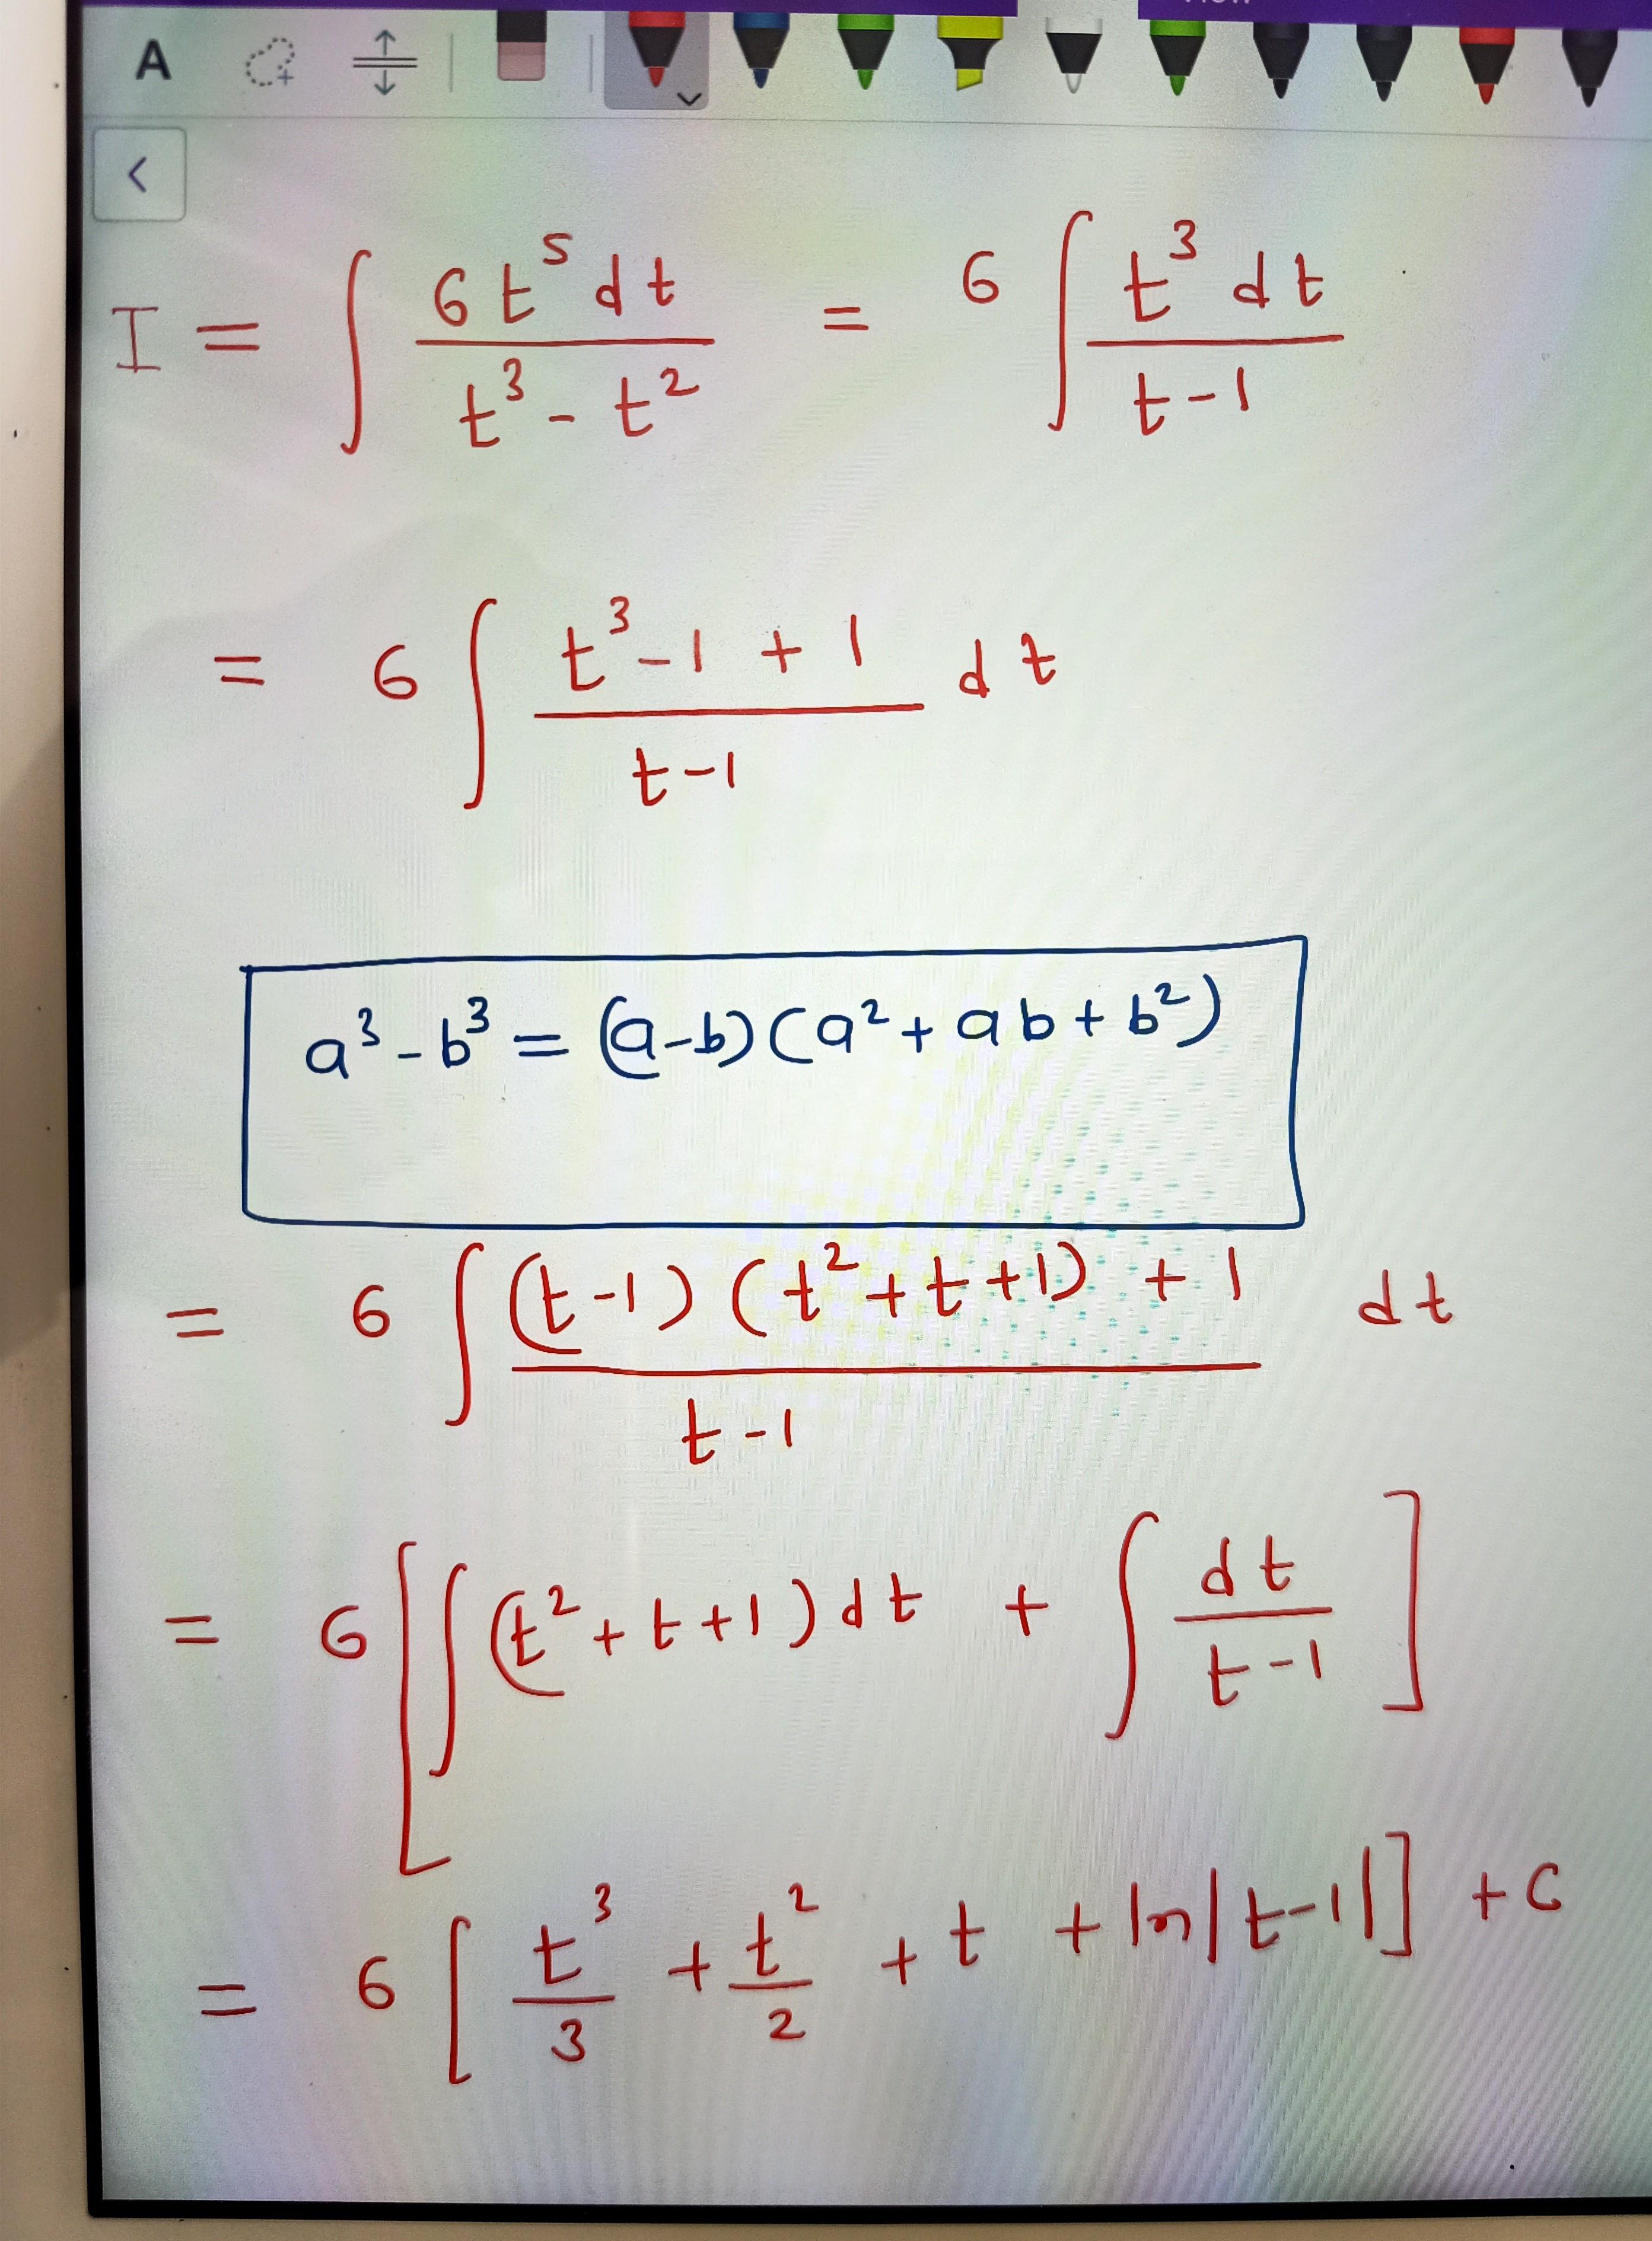 A
I = ∫ 6t⁵ dt / t³ - t² = 6 ∫ t³ dt / t-1
= 6 ∫ t³-1 + 1 / t-1 dt
a³ - b³ = (a-b)(a² + ab + b²)
= 6 ∫ (t-1)(t² + t + 1) + 1 / t-1 dt
= 6 [∫ (t² + t + 1) dt + ∫ dt / t-1 ]
= 6 [ t³/3 + t²/2 + t + ln|t-1| ] + C